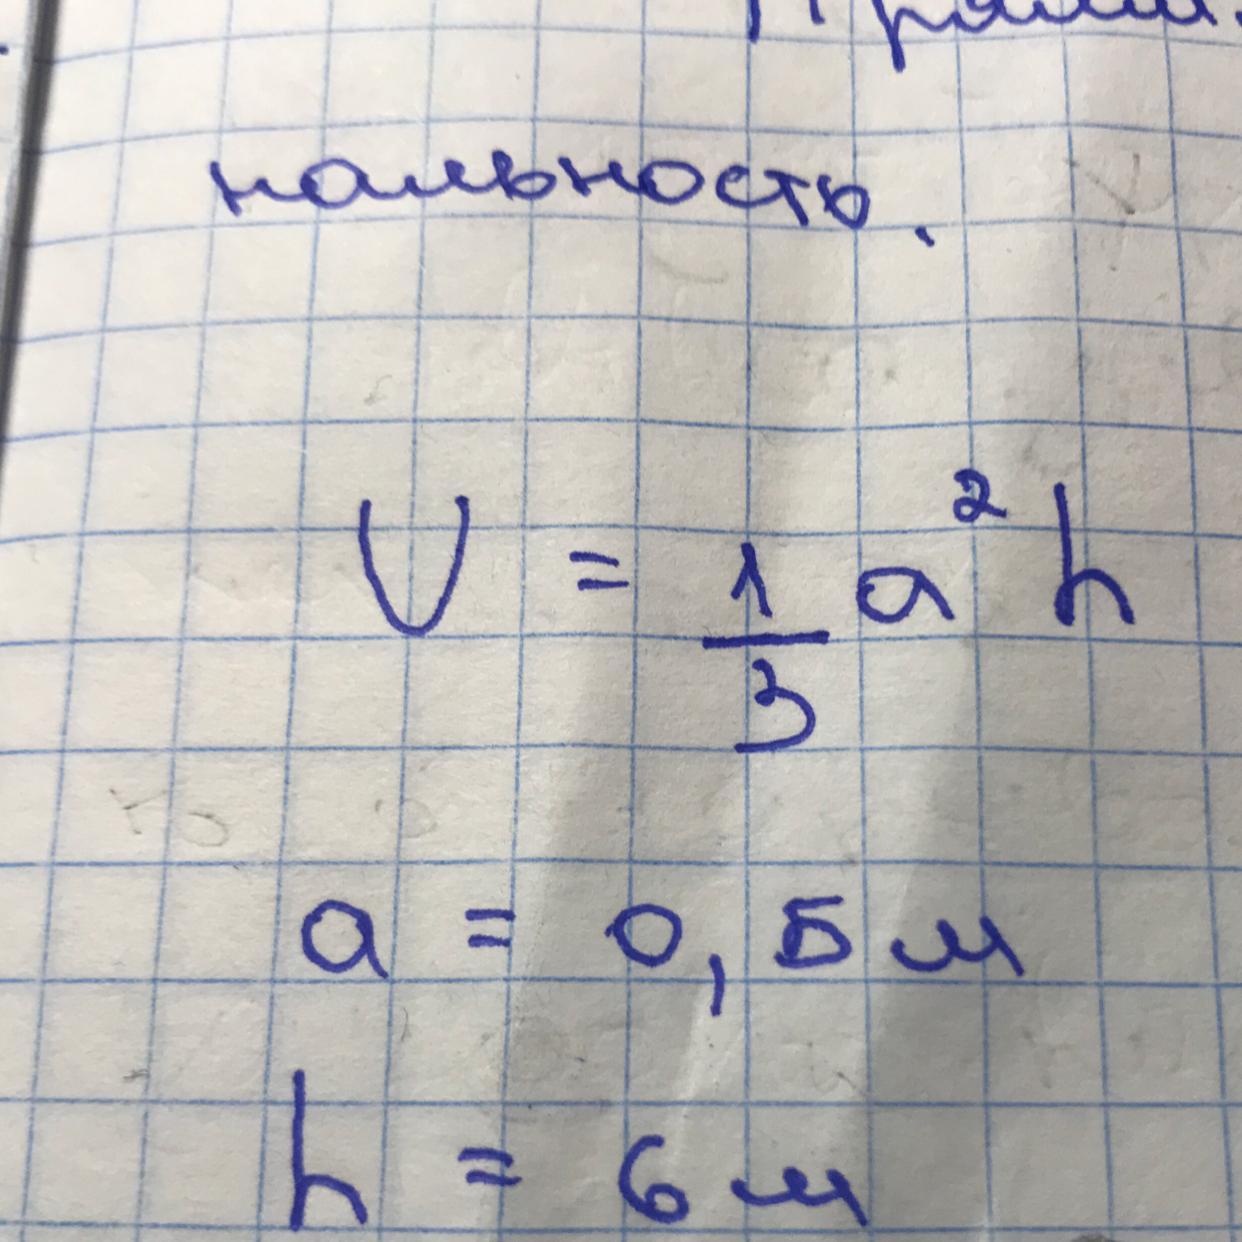 нальность.
V = 1/3 a² h
a = 0,5 м
h = 6 м